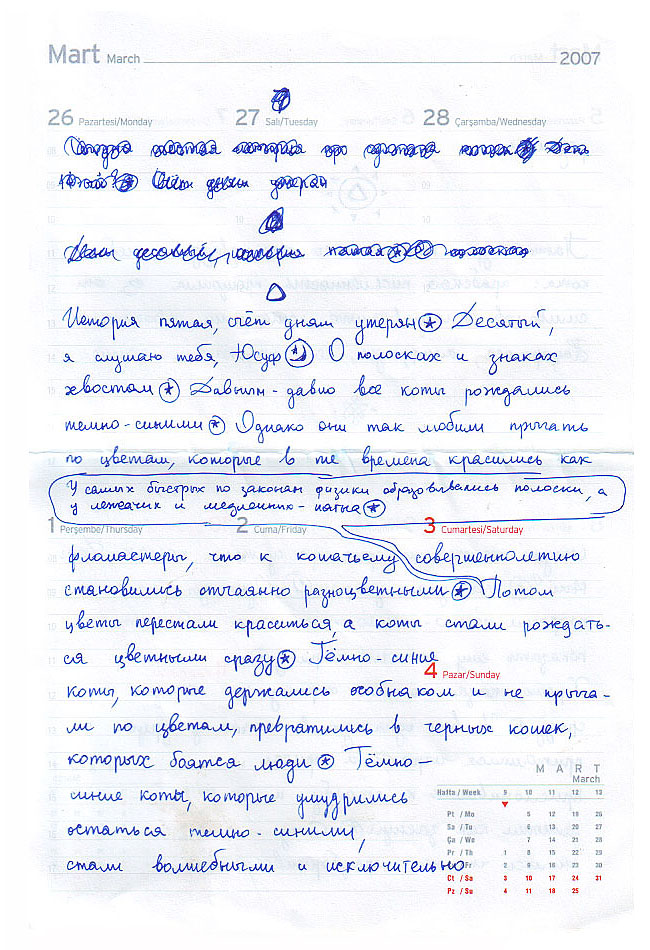 Mart March 2007
26 Pazartesi/Monday 27 Salı/Tuesday 28 Çarşamba/Wednesday
История пятая, счёт дням утерян * Десятый,
я слушаю тебя, Юсуф О полосках и знаках
хвостам * Давным-давно все коты рождались
темно-синими * Однако они так любили прыгать
по цветам, которые в те времена красились как
У самых быстрых по законам физики образовывались полоски, а
у лежачих и медленных - пятна *
1 Perşembe/Thursday 2 Cuma/Friday 3 Cumartesi/Saturday
фломастеры, что к кошачьему совершеннолетию
становились отчаянно разноцветными * Потом
цветы перестали краситься, а коты стали рождать-
ся цветными сразу * Тёмно-синие
4 Pazar/Sunday
коты, которые держались особняком и не прыга-
ли по цветам, превратились в черных кошек,
которых боятся люди * Тёмно-
синие коты, которые умудрились
остаться темно-синими,
стали волшебными и исключительно
MART
March
Hafta / Week 9 10 11 12 13
Pt / Mo 5 12 19 26
Sa / Tu 6 13 20 27
Ça / We 7 14 21 28
Pr / Th 1 8 15 22 29
Fr 2 9 16 23 30
Ct / Sa 3 10 17 24 31
Pz / Su 4 11 18 25